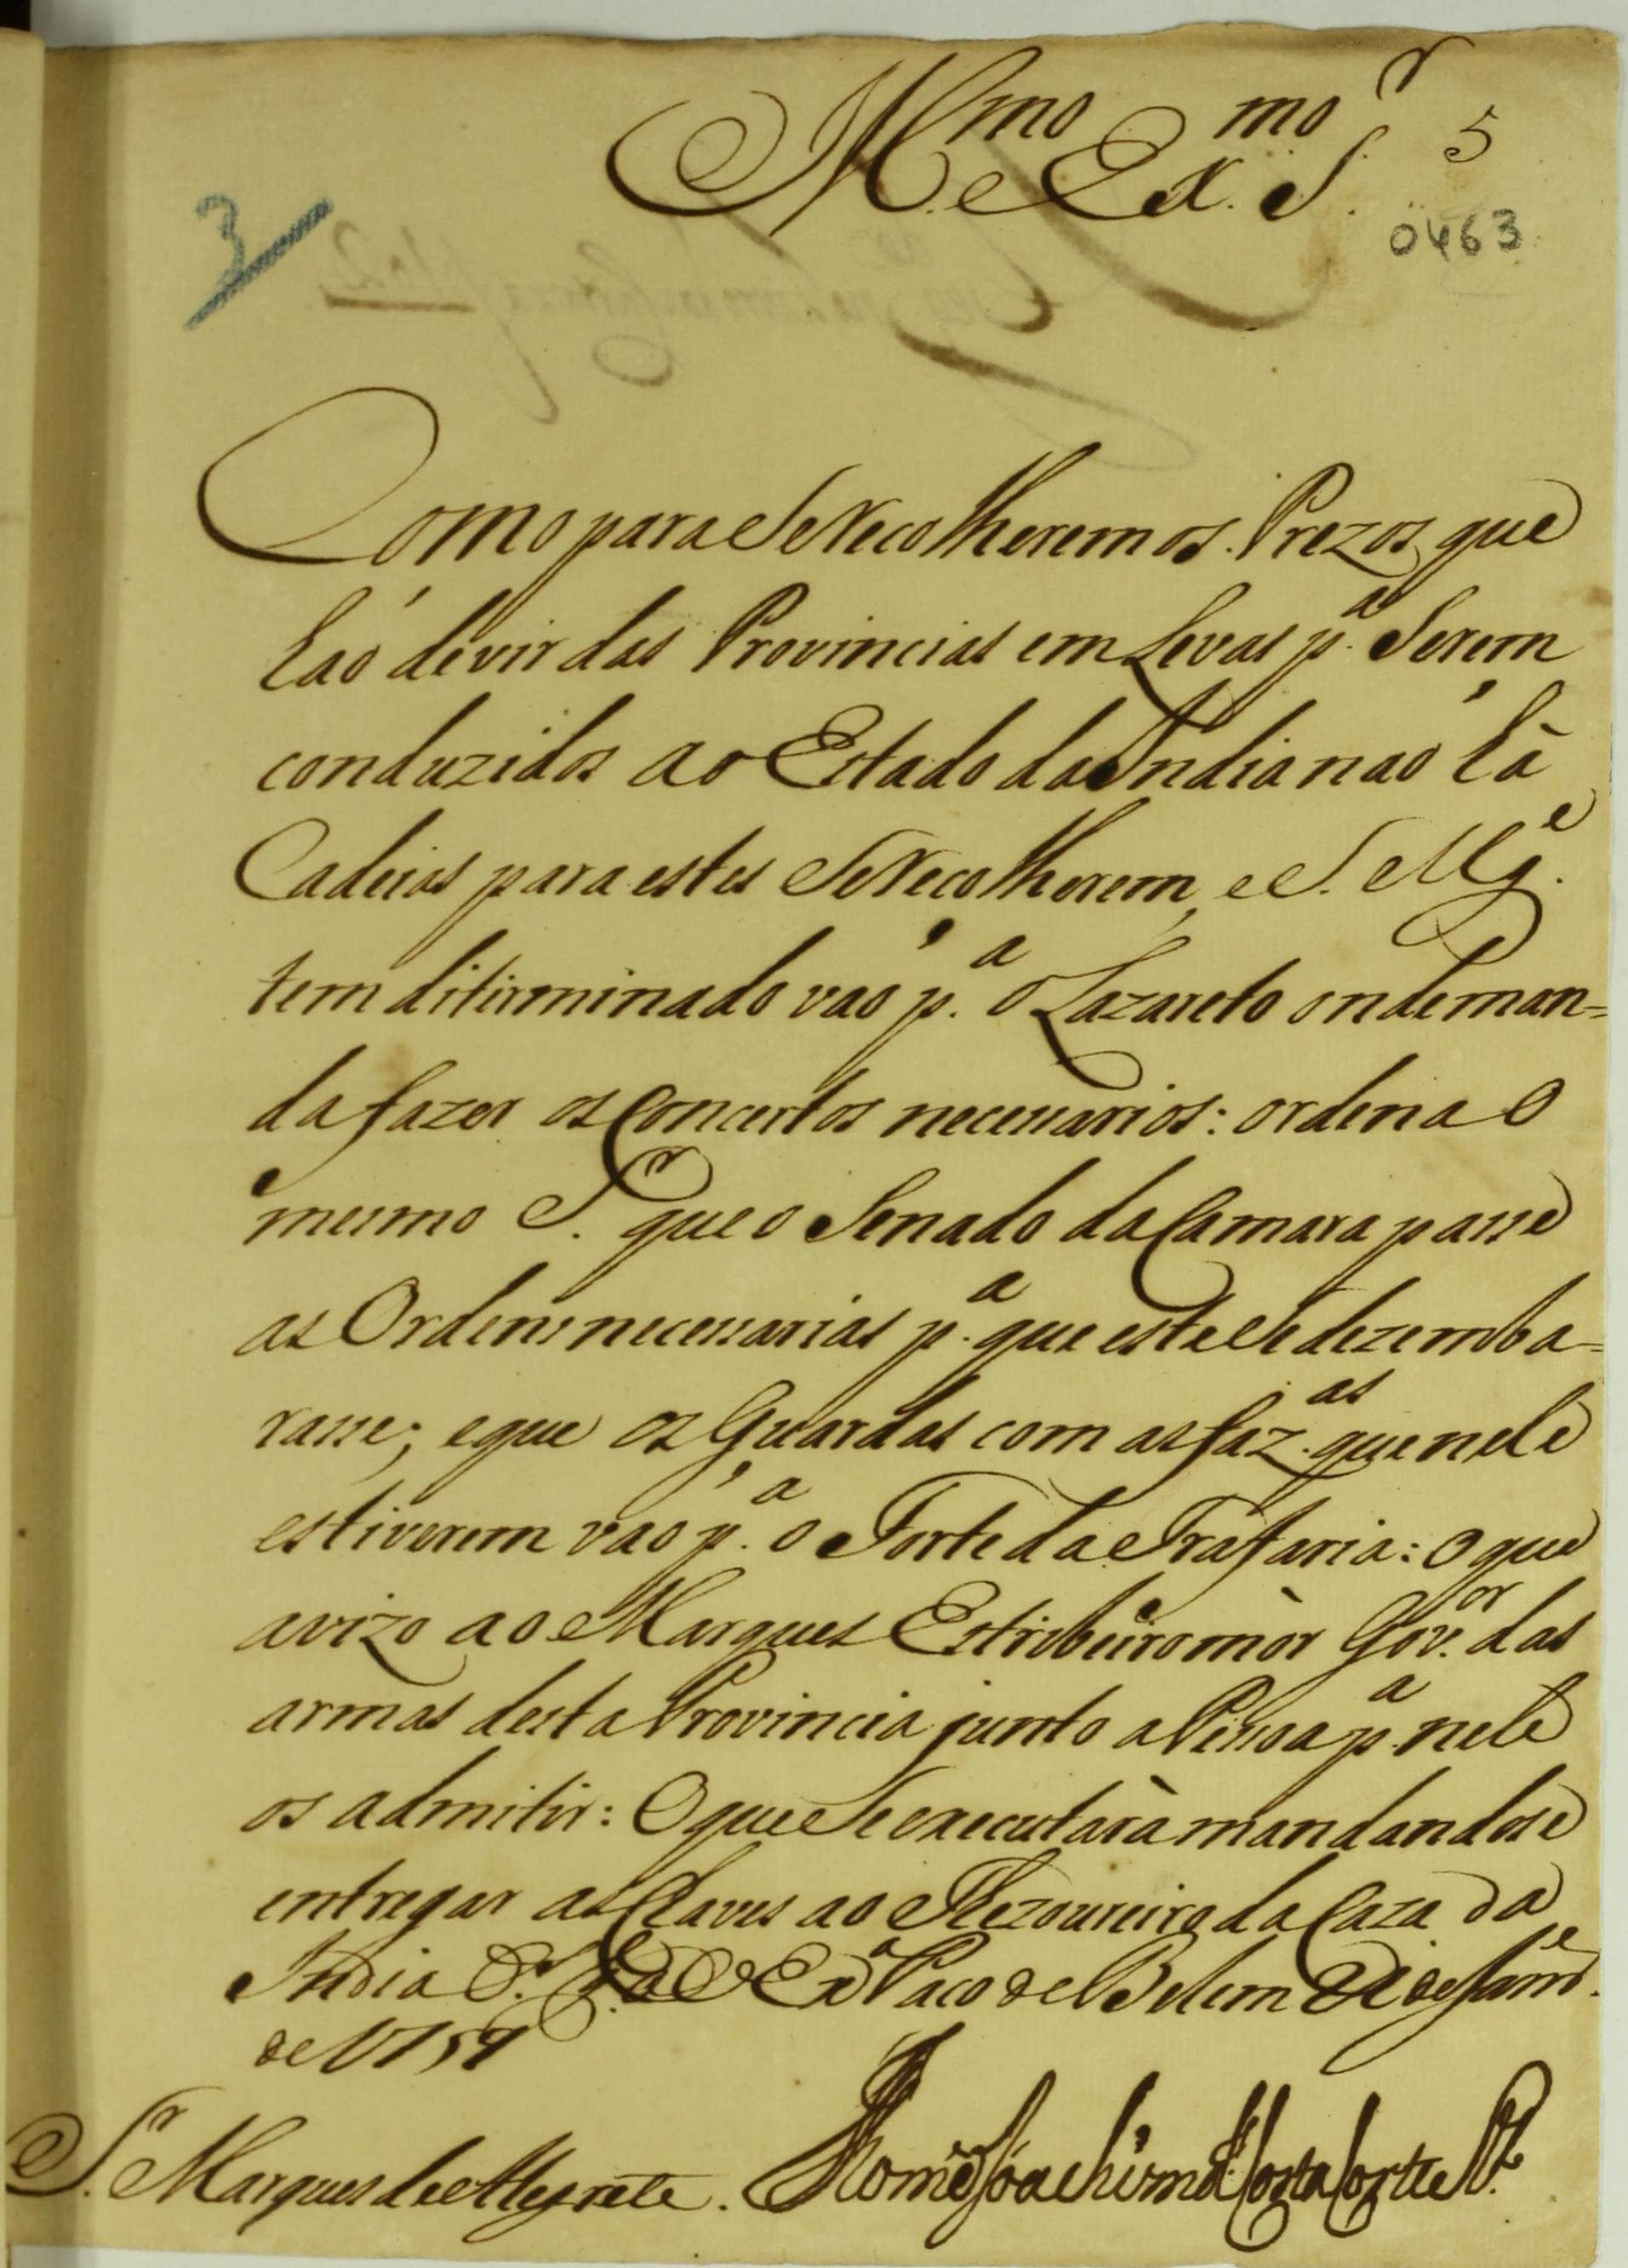 Ill.mo e Ex.mo S.r
5
0463
3
Como para Se Recolherem os Prezos que
hão de vir das Provincias em Levas p.a Serem
conduzidos ao Estado da India não há
Cadeias para estes Se Recolherem, e S. Mg.e
tem ditirminado vão p.a o Lazareto onde man=
da fazer os Concertos necessarios: ordena o
mesmo S.r que o Senado da Camara passe
as Ordens necessarias p.a que este Se dezemba=
rasse; e que os Guardas com as faz.as que nele
estiverem vão p.a o Forte da Trafaria: o que
avizo ao Marques Estribeiro mòr Gov.or das
armas desta Provincia junto a Pessoa p.a nele
os admitir: O que Se executarà mandandose
entregar as Chaves ao Thezoureiro da Caza da
India D.s g.de a V. Ex.a Paço de Belem de Janr.o
de 1757
S.r Marques de Alegrete. Thomé Joachim da Costa Corte R.l